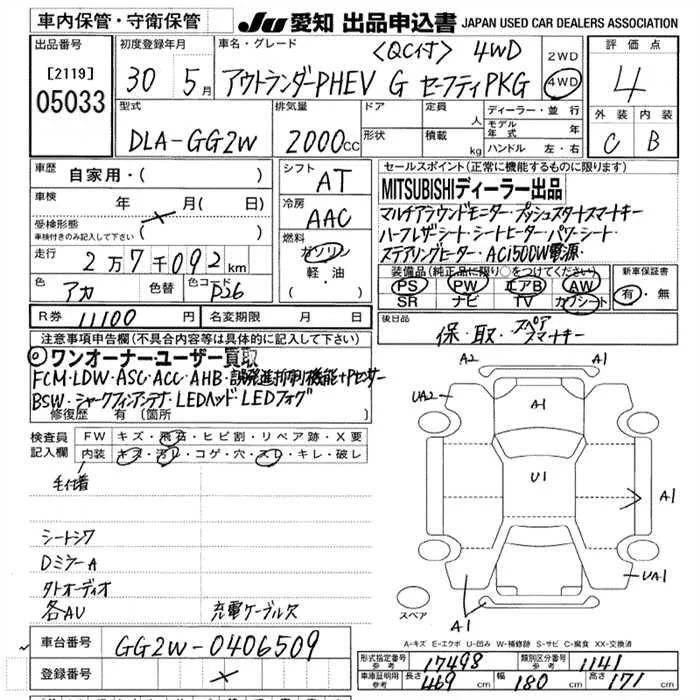 車内保管・守衛保管
JU 愛知 出品申込書 JAPAN USED CAR DEALERS ASSOCIATION
出品番号
[2119]
05033
初度登録年月
30 5月
車名・グレード
〈QC付〉 4WD
アウトランダーPHEV G セーフティPKG
2WD
4WD
評価点
4
外装 内装
C B
型式
DLA-GG2W
排気量
2000cc
ドア
形状
定員 人
積載 kg
ディーラー・並行
モデル年式 年
ハンドル 左・右
車歴
自家用・( )
車検 年 月(日)
受検形態
車検付きのみ記入して下さい ( )
走行
2万7千092km
色 アカ 色替 色コード P26
シフト
AT
冷房
AAC
燃料
ガソリン
軽・油
( )
セールスポイント(正常に機能するものに限ります)
MITSUBISHIディーラー出品
マルチアラウンドモニター・プッシュスタートスマートキー
ハーフレザーシート・シートヒーター・パワーシート・
ステアリングヒーター・AC1500W電源・
装備品(純正品に限り○をつけてください)
PS PW エアB AW
SR ナビ TV カワシート
新車保証書
有・無
R券 11100円 名変期限 月 日
後日品
保・取・スペアスマートキー
注意事項申告欄(不具合内容等は具体的に記入して下さい)
◎ワンオーナーユーザー買取
FCM・LDW・ASC・ACC・AHB・誤発進抑制機能+Pセンサー
BSW・シャークフィンアンテナ・LEDヘッド・LEDフォグ
修復歴 有 〔箇所 〕
検査員記入欄
FW キズ・飛石・ヒビ割・リペア跡・X要
内装 キズ・汚レ・コゲ・穴・スレ・キレ・破レ
毛付着
シートシワ
DミラーA
タトオーディオ
各AU 充電ケーブルス
A2 A1
UA2 A1
U1
A1
UA1
A1
スペア
A-キズ E-エクボ U-凹み W-補修跡 S-サビ C-腐食 XX-交換済
車台番号 GG2W-0406509
登録番号
形式指定番号 参考 17498 類別区分番号 参考 1141
車庫証明用 参考 長さ 469cm 幅 180cm 高さ 171cm